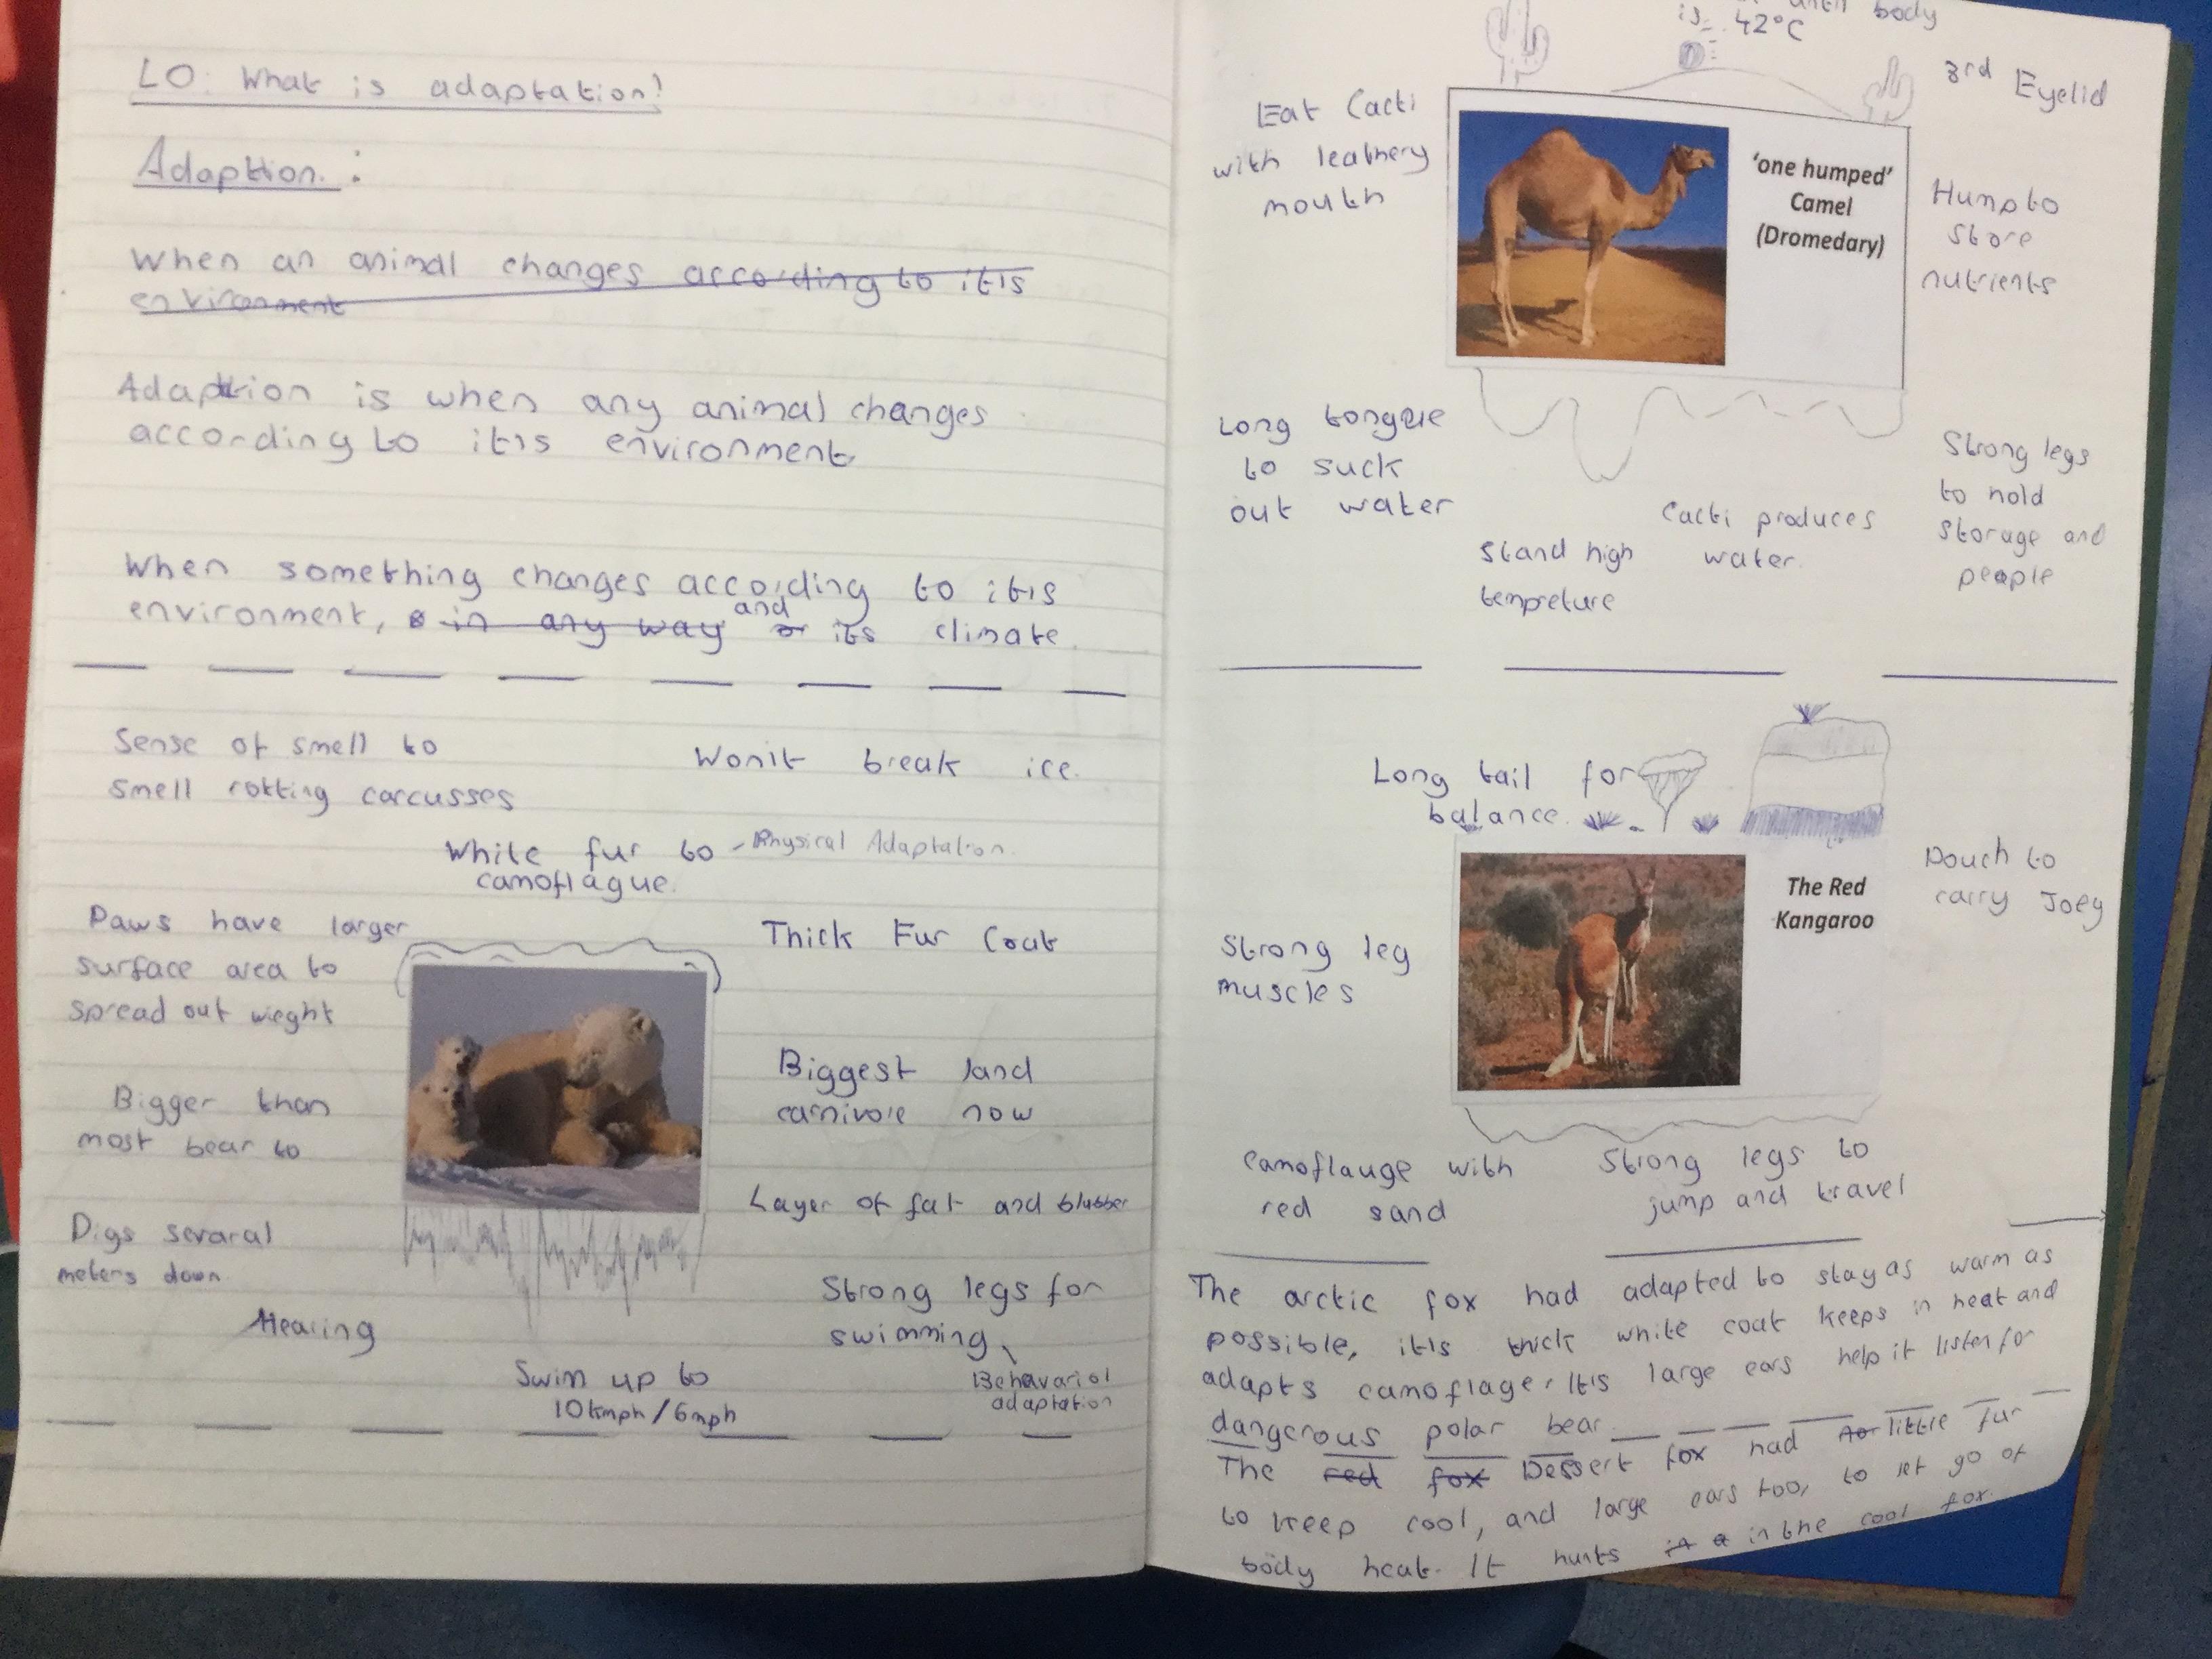 LO: What is adaptation?
Adaption:
When an animal changes according to it's
environment
Adaption is when any animal changes
according to it's environment
When something changes according to it's
environment, in any way and or its climate.
Sense of smell to
smell rotting carcusses
Won't break ice.
White fur to - Physical Adaptation.
camoflague.
Paws have larger
surface area to
spread out wieght
Thick Fur Coat
Bigger than
most bear to
Biggest land
carnivore now
Layer of fat and blubber
Digs sevaral
meters down.
Hearing
Strong legs for
swimming
Behavariol
adaptation
Swim up to
10kmph/6mph
until body
is 42°C
3rd Eyelid
Eat Cacti
with leathery
mouth
'one humped'
Camel
(Dromedary)
Hump to
store
nutrients
Long tongue
to suck
out water
Stand high
tempreture
Cacti produces
water.
Strong legs
to hold
storage and
people
Long tail for
balance.
The Red
Kangaroo
Pouch to
carry Joey
Strong leg
muscles
Camoflauge with
red sand
Strong legs to
jump and travel
The arctic fox had adapted to stay as warm as
possible, it's thick white coat keeps in heat and
adapts camoflage. It's large ears help it listen for
dangerous polar bear.
The red fox Dessert fox had little fur
to keep cool, and large ears too, to let go of
body heat. It hunts in the cool fox.